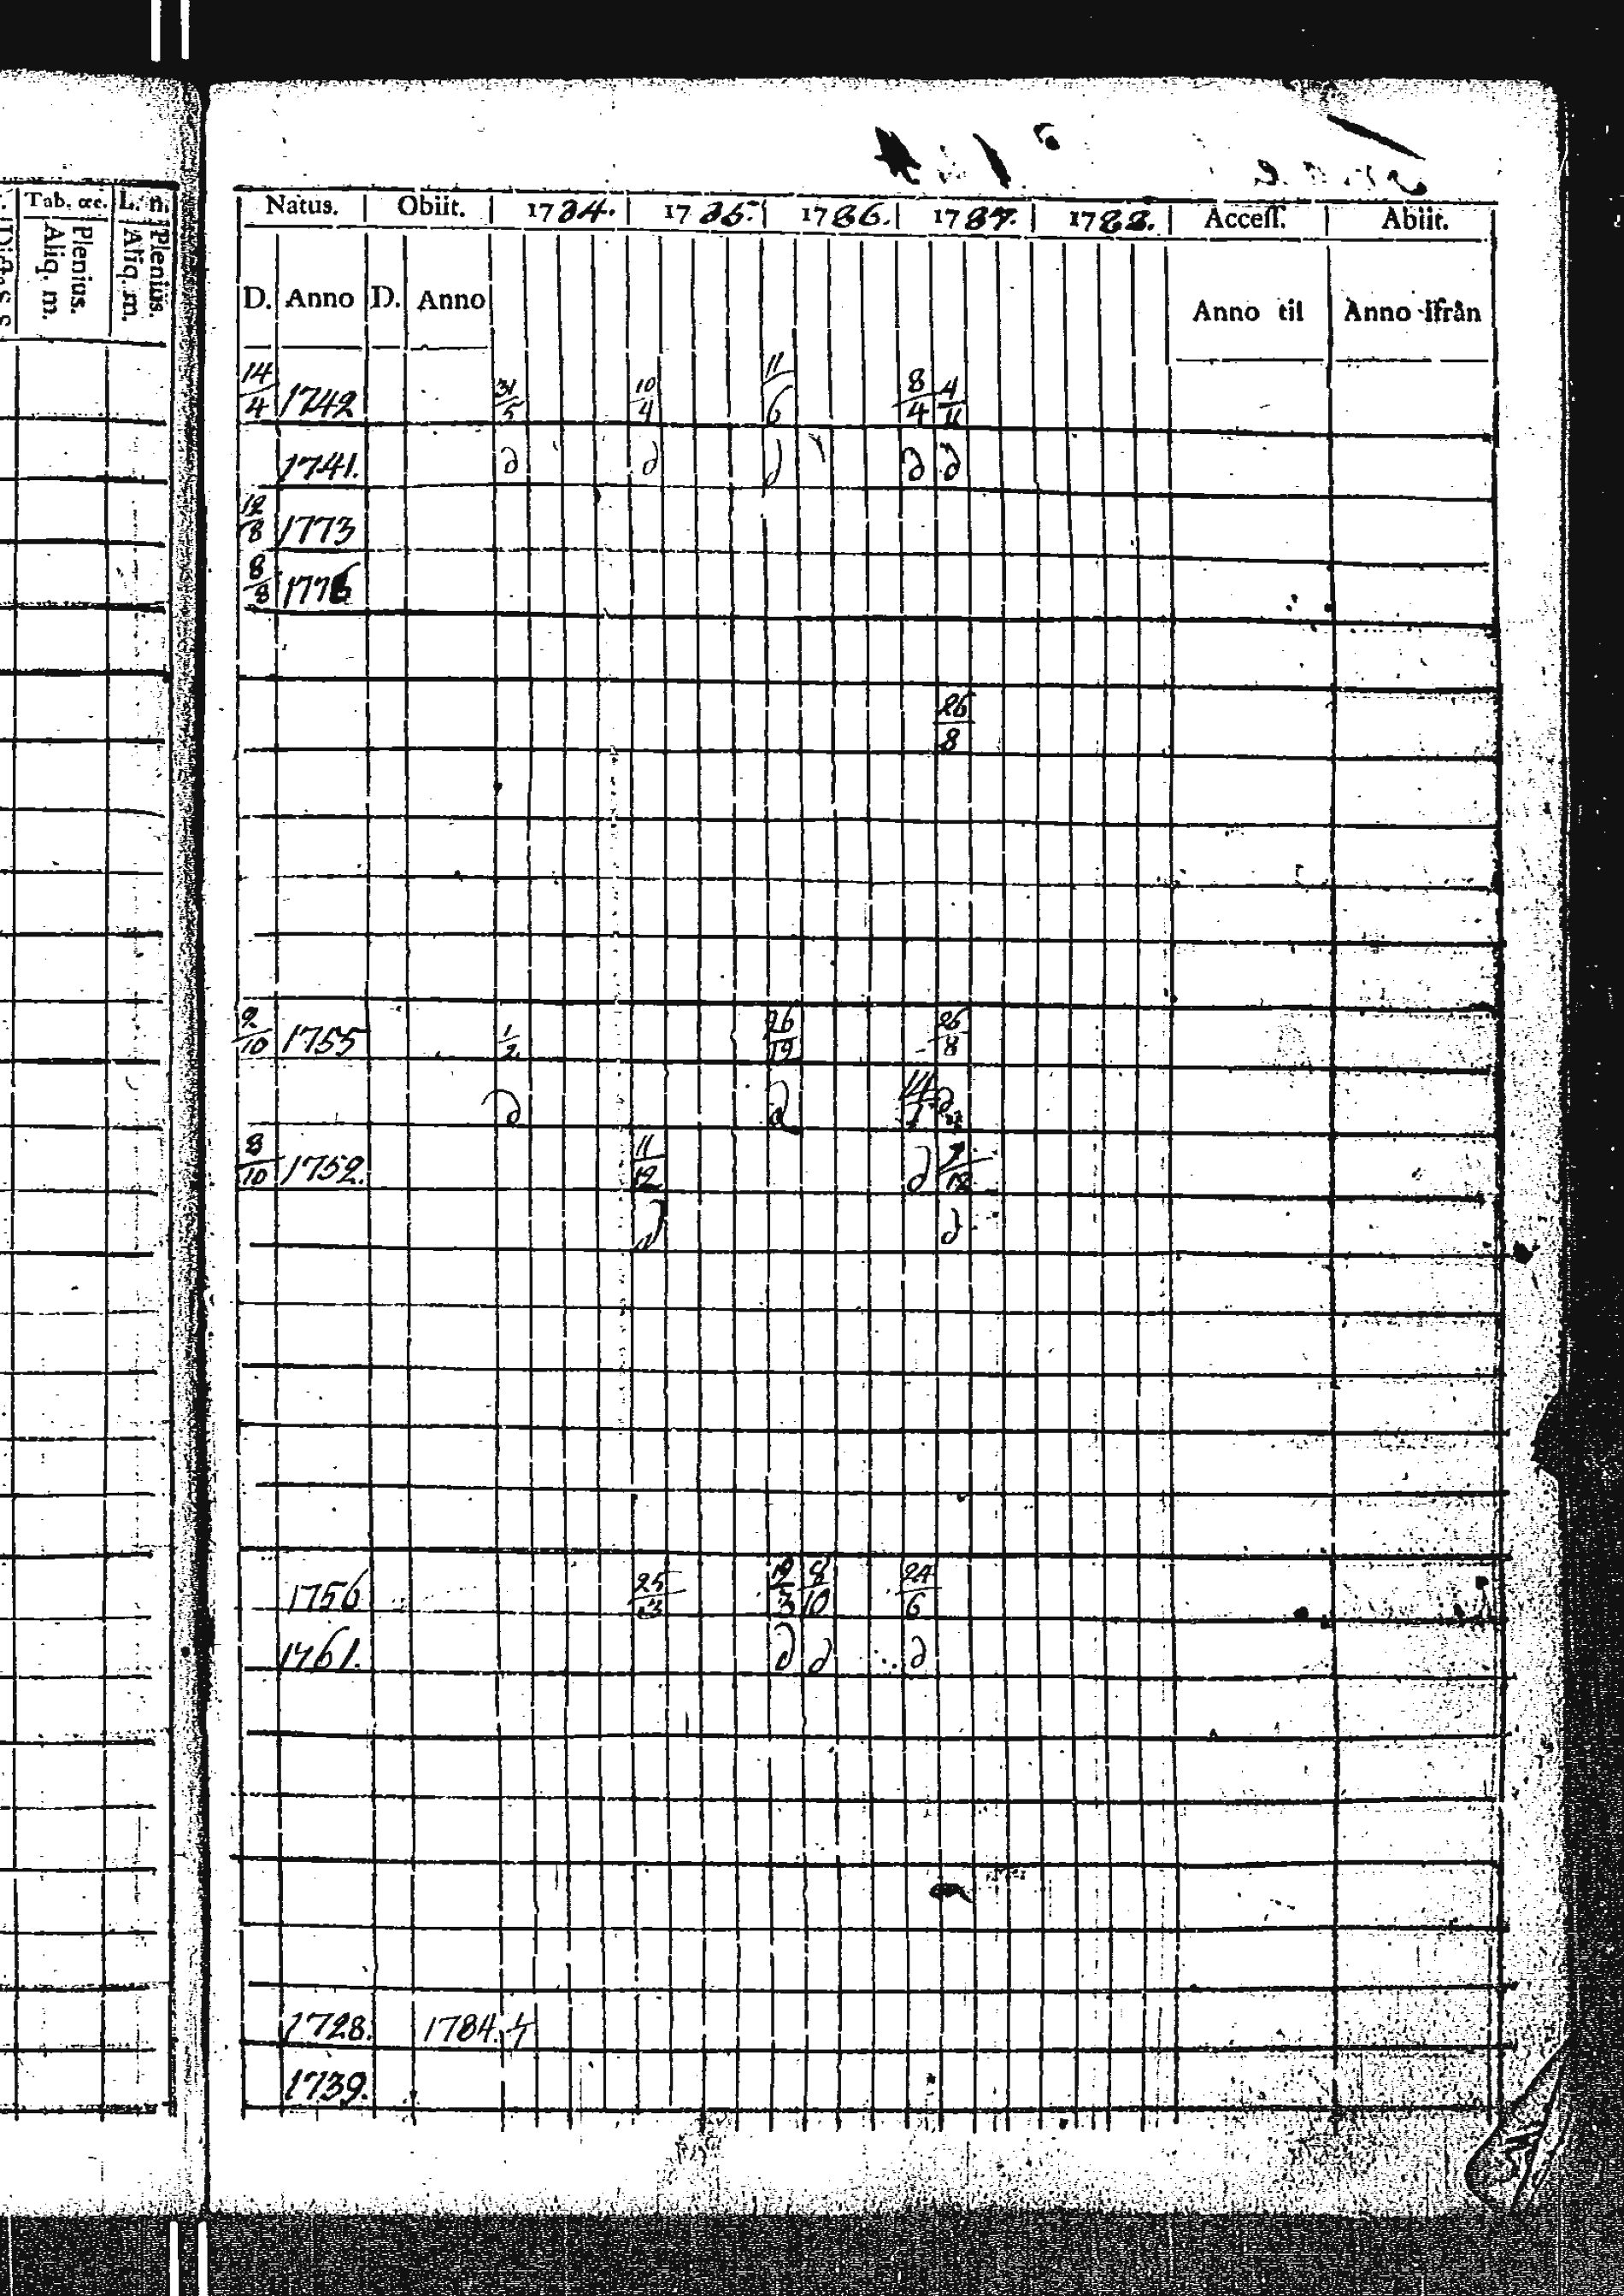 Tab. œc. L. n.
Plenius.
Aliq. m.
Plenius.
Aliq. m.
Natus. Obiit. 1784. 1785. 1786. 1787. 1788. Access. Abiit.
D. Anno D. Anno Anno til Anno ifrån
14/4 1742 31/5 10/4 11/6 8/4 4/11
1741. d d d d d
12/8 1773
8/8 1776
26/8
2/10 1755 1/2 26/12 26/8
d d d
8/10 1752. 11/12 d 9/12
d d
1756 25/3 12/3 8/10 24/6
1761. d d d
1728. 1784.
1739.